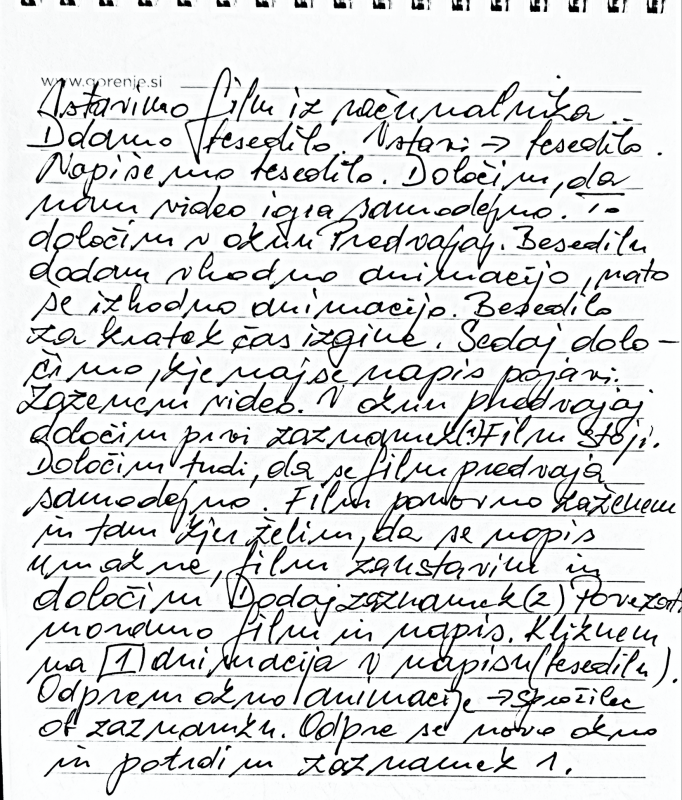 www.gorenje.si
Vstavimo film iz računalnika..
Dodamo besedilo. Vstavi → besedilo.
Napišemo besedilo. Določim, da
nam video igra samodejno. To
določim v oknu Predvajaj. Besedilu
dodam vhodno animacijo, nato
še izhodno animacijo. Besedilo
za kratek čas izgine. Sedaj dolo-
čimo, kje naj se napis pojavi.
Zaženem video. V oknu predvajaj
določim prvi zaznamek(1) Film stoji.
Določim tudi, da se film predvaja
samodejno. Film ponovno zaženem
in tam kjer želim, da se napis
umakne, film zaustavim in
določim Dodaj zaznamek(2) Povezati
moramo film in napis. Kliknem
na 1 animacija v napisu (besedilu).
Odprem okno animacije → sprožilec
ob zaznamku. Odpre se novo okno
in potrdim zaznamek 1.